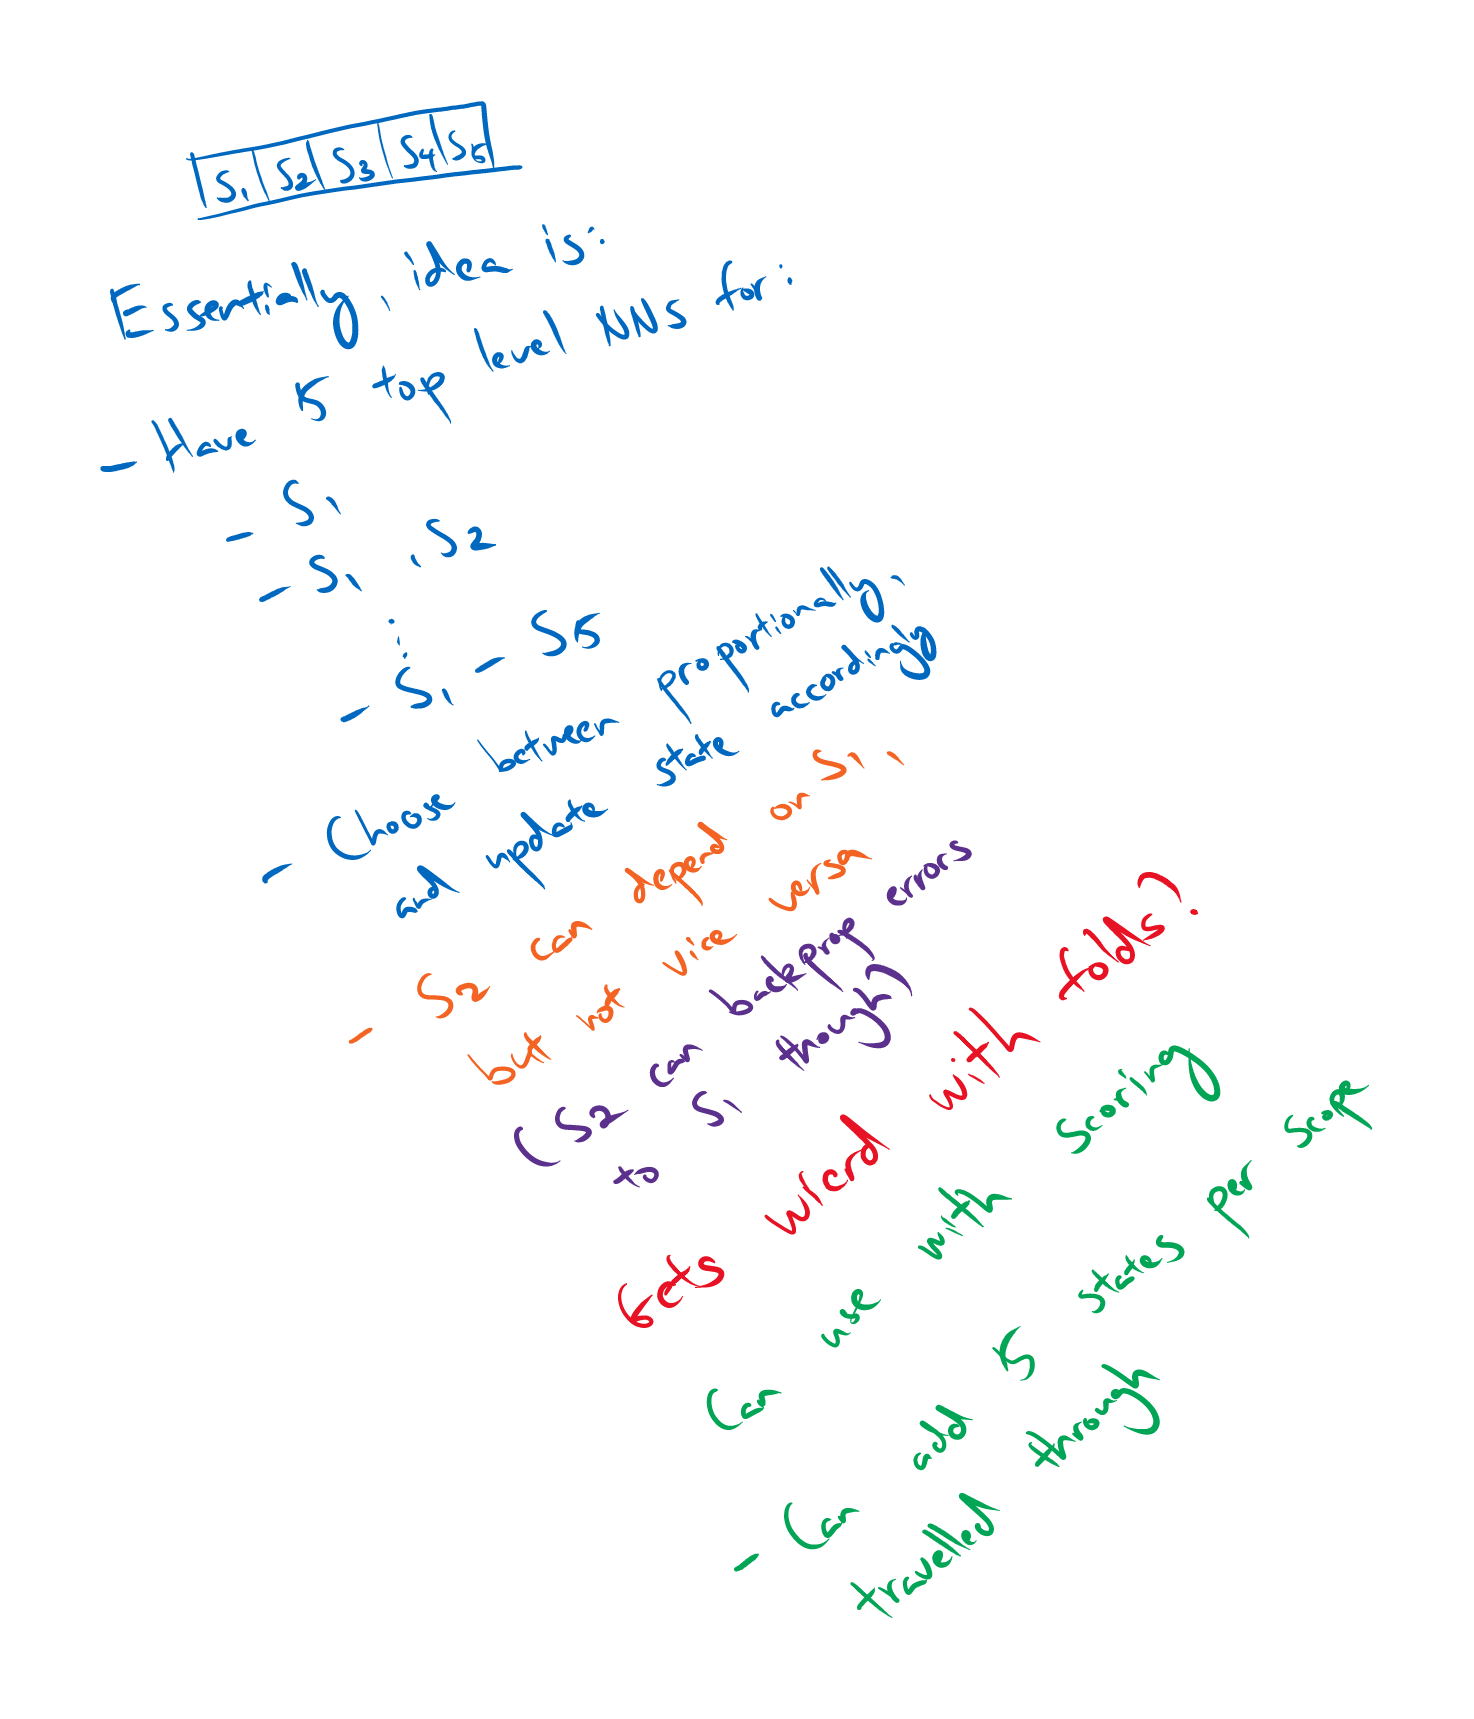 S1 S2 S3 S4 S5
Essentially, idea is:
- Have 5 top level NNs for:
- S1
- S1, S2
⋮
- S1 - S5
- Choose between proportionally,
and update state accordingly
- S2 can depend on S1,
but not vice versa
(S2 can backprop errors
to S1 though)
Gets wierd with folds?
Can use with scoring
- Can add 5 states per scope
travelled through